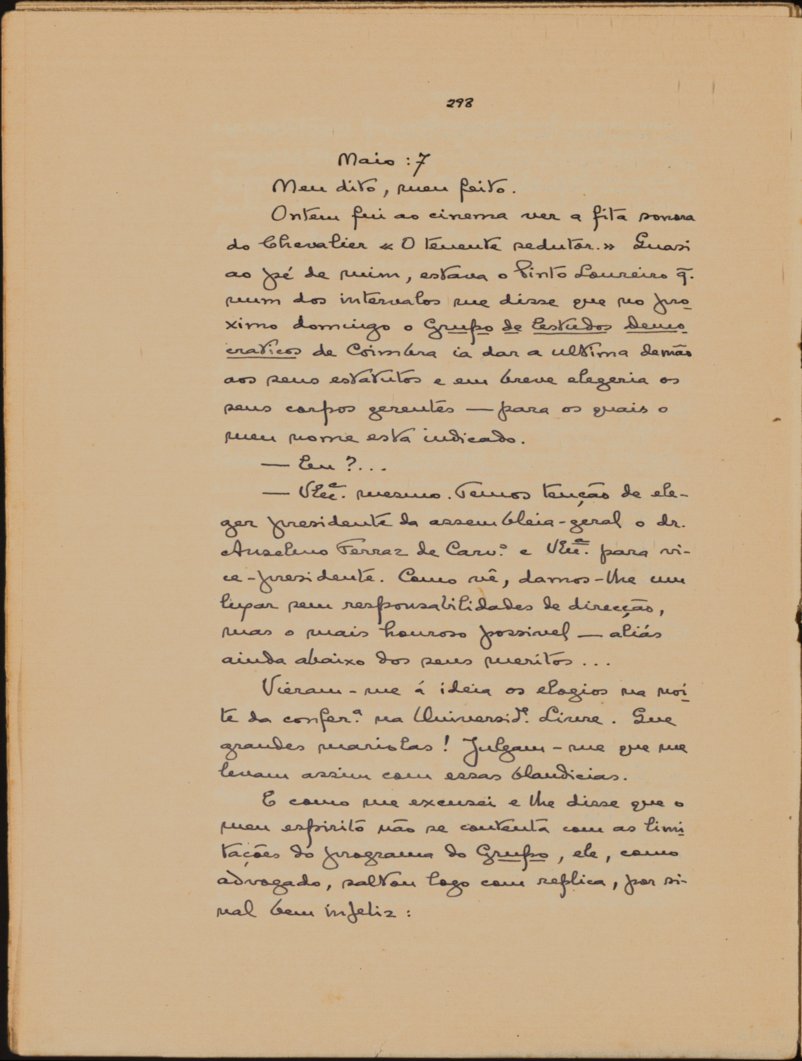 298
Maio : 7
Meu dito, meu feito.
Ontem fui ao cinema ver a fita sonora
do Chevalier « O tenente sedutor. » Quasi
ao pé de mim, estava o Pinto Loureiro q̃.
num dos intervalos me disse que no pro-
ximo domingo o Grupo de Estudos Demo-
craticos de Coimbra ia dar a ultima demão
aos seus estatutos e em breve elegeria os
seus corpos gerentes — para os quais o
meu nome está indicado.
— Eu ?...
— V.Ex.cia mesmo. Temos tenção de ele-
ger presidente da assembleia-geral o dr.
Anselmo Ferraz de Carv.º e V.Ex.cia para vi-
ce-presidente. Como vê, damos-lhe um
lugar sem responsabilidades de direcção,
mas o mais honroso possivel — aliás
ainda abaixo dos seus meritos ...
Vieram-me á ideia os elogios na noi-
te da confer.ª na Universid.e Livre. Que
grandes mariolas ! Julgam-me que me
levam assim com essas blandicias.
E como me excusei e lhe disse que o
meu espirito não se contenta com as limi-
tações do programa do Grupo, ele, como
advogado, saltou logo com replica, por si-
nal bem infeliz :